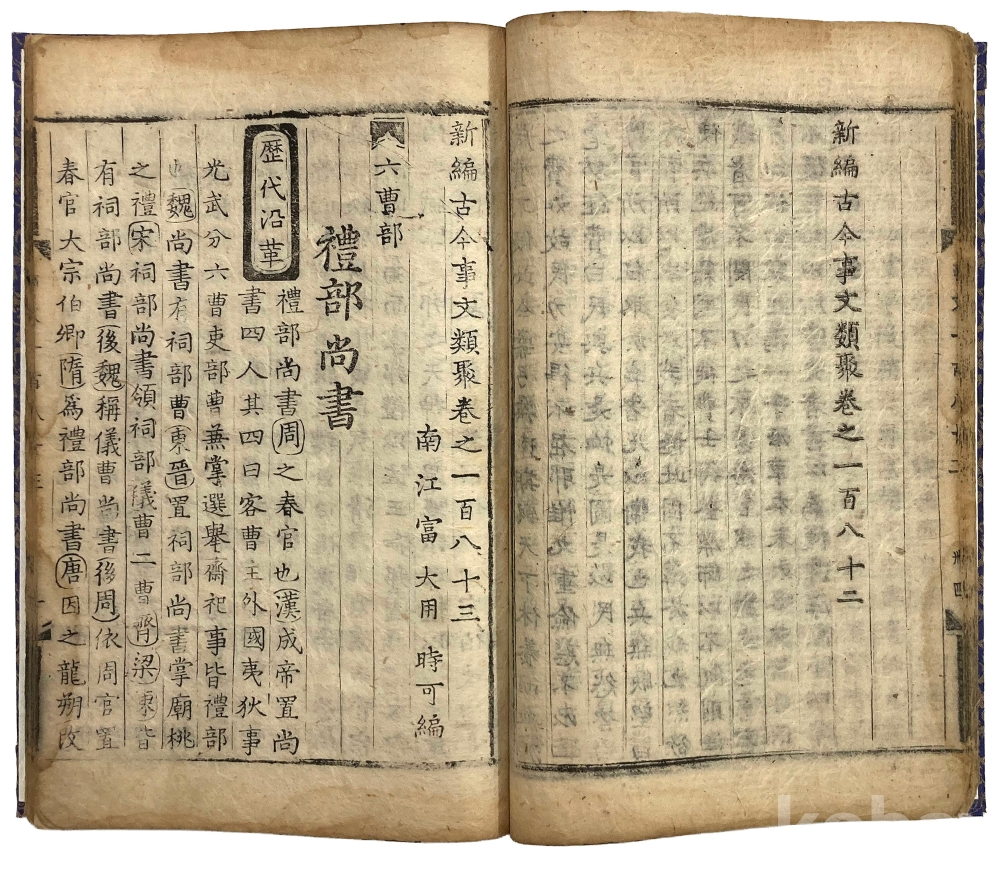 新編古今事文類聚卷之一百八十二
新編古今事文類聚卷之一百八十三
南江富大用 時可編
六曹部
禮部尚書
歴代沿革
禮部尚書周之春官也漢成帝置尚
書四人其四曰客曹主外國夷狄事
光武分六曹吏部曹兼掌選舉齋祀事皆禮部
也魏尚書有祠部曹東晉置祠部尚書掌廟祧
之禮宋祠部尚書領祠部儀曹二曹齊梁陳皆
有祠部尚書後魏稱儀曹尚書後周依周官置
春官大宗伯卿隋爲禮部尚書唐因之龍朔改